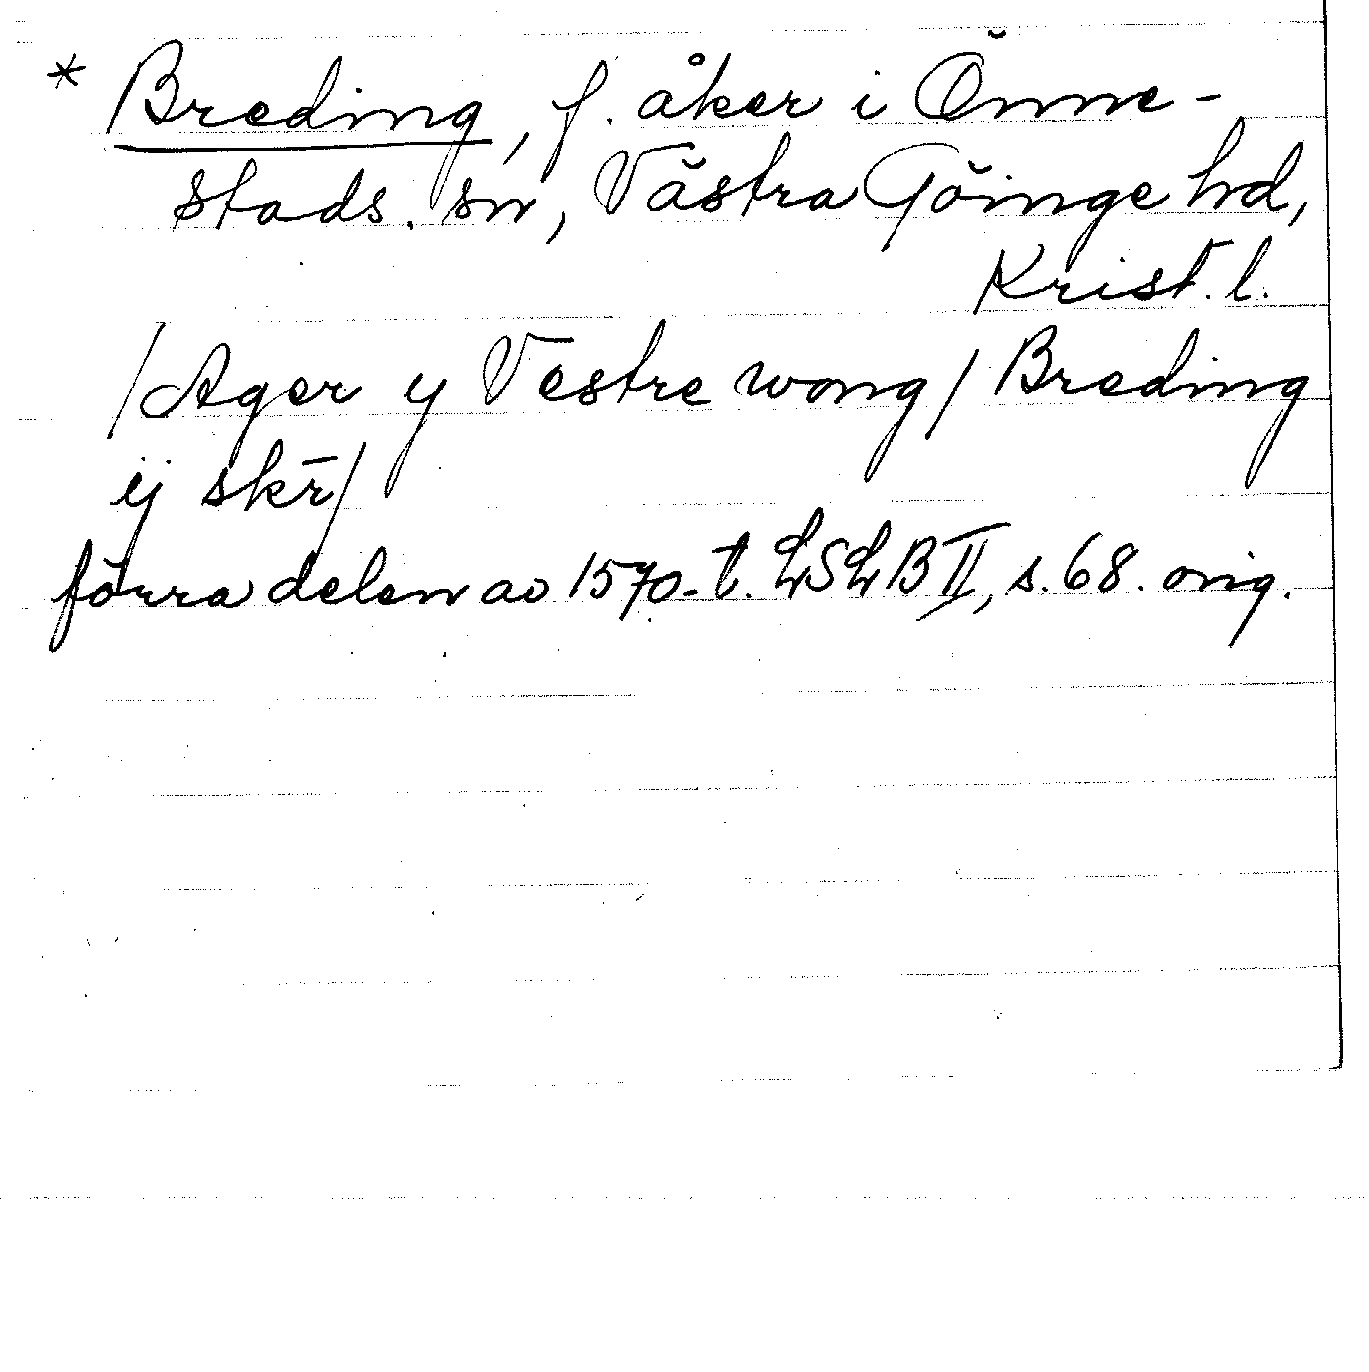 * Breding, f. åker i Önne-
stads. sn, Västra Göinge hd,
Krist. l.
/Ager y Vestre wong/ Breding
ij skr̄/
förra delen av 1570-t. LSLB II, s. 68. orig.